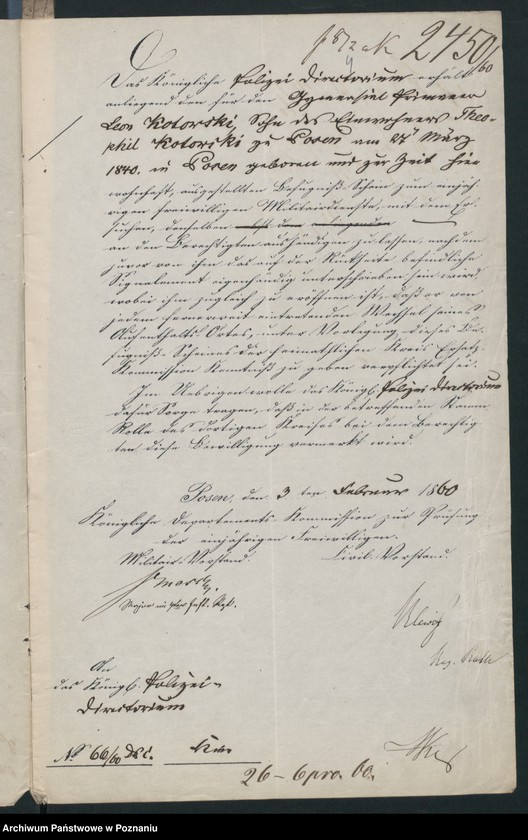 2450/60
Das Königliche Polizei Directorium erhält
anliegend den für den Gymnasial Primaner
Leon Kotorski, Sohn des Einwohners Theo-
phil Kotorski zu Posen am 27t März
1840. in Posen geboren und zur Zeit hier
wohnhaft, ausgestellten Befugniß-Schein zum einjäh-
rigen freiwilligen Militairdienste, mit dem Er-
suchen, denselben
an den Berechtigten aushändigen zu lassen, nachdem
zuvor von ihm das auf der Rückseite befindliche
Signalement eigenhändig unterschrieben sein wird
wobei ihm zugleich zu eröffnen ist, daß er von
jedem fernerweit eintretenden Wechsel seines
Aufenthalts Ortes, unter Vorlegung dieses Be-
fugniß-Scheines der heimathlichen Kreis Ersatz-
Kommission Kenntniß zu geben verpflichtet sei.
Im Uebrigen wolle das Königl. Polizei Directorium
dafür Sorge tragen, daß in der betreffenden Stamm
Rolle des dortigen Kreises bei dem Berechtig-
ten diese Bewilligung vermerkt wird.
Posen, den 3 ten Februar 1860
Königliche Departements Kommission zur Prüfung
der einjährigen Freiwilligen.
Militair-Vorstand. Civil-Vorstand.
Major im
Reg. Rath
An
das Königl. Polizei-
Directorium
No 66/60 
26
Archiwum Państwowe w Poznaniu